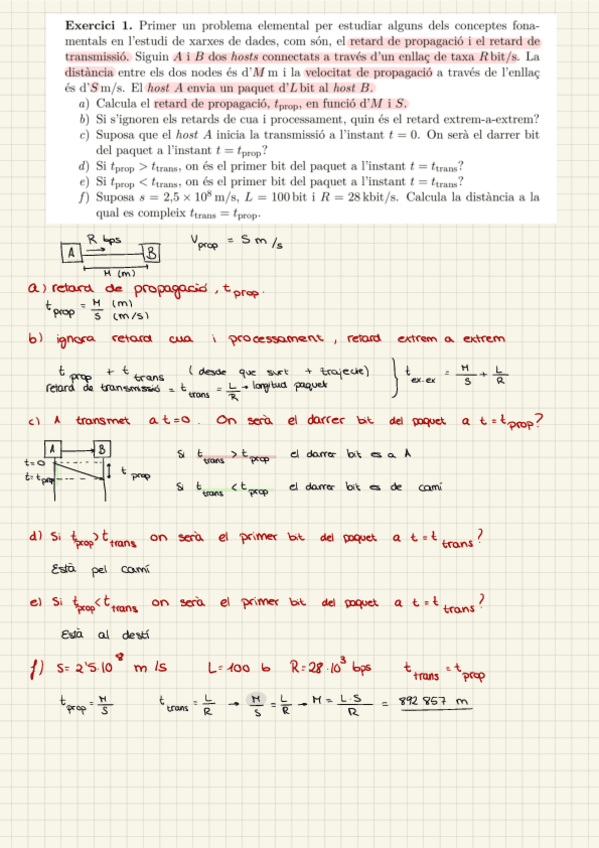 Exercici 1. Primer un problema elemental per estudiar alguns dels conceptes fona-
mentals en l'estudi de xarxes de dades, com són, el retard de propagació i el retard de
transmissió. Siguin A i B dos hosts connectats a través d'un enllaç de taxa R bit/s. La
distància entre els dos nodes és d'M m i la velocitat de propagació a través de l'enllaç
és d'S m/s. El host A envia un paquet d'L bit al host B.
a) Calcula el retard de propagació, tprop, en funció d'M i S.
b) Si s'ignoren els retards de cua i processament, quin és el retard extrem-a-extrem?
c) Suposa que el host A inicia la transmissió a l'instant t = 0. On serà el darrer bit
del paquet a l'instant t = tprop?
d) Si tprop > ttrans, on és el primer bit del paquet a l'instant t = ttrans?
e) Si tprop < ttrans, on és el primer bit del paquet a l'instant t = ttrans?
f) Suposa s = 2,5 × 10⁸ m/s, L = 100 bit i R = 28 kbit/s. Calcula la distància a la
qual es compleix ttrans = tprop.
R bps
Vprop = S m/s
A B
M (m)
a) retard de propagació, tprop.
tprop = M/S (m)/(m/s)
b) ignora retard cua i processament, retard extrem a extrem
tprop + ttrans (desde que surt + trajecte) } tex-ex = M/S + L/R
retard de transmissió = ttrans = L/R → longitud paquet
c) A transmet a t=0. On serà el darrer bit del paquet a t = tprop?
A B
Si ttrans > tprop el darrer bit es a A
t=0
t=tprop
tprop
Si ttrans < tprop el darrer bit es de camí
d) Si tprop > ttrans on serà el primer bit del paquet a t = ttrans?
Està pel camí
e) Si tprop < ttrans on serà el primer bit del paquet a t = ttrans?
Està al destí
f) S = 2'5·10⁸ m/s L = 100 b R = 28·10³ bps ttrans = tprop
tprop = M/S ttrans = L/R → M/S = L/R → M = L·S/R = 892 857 m